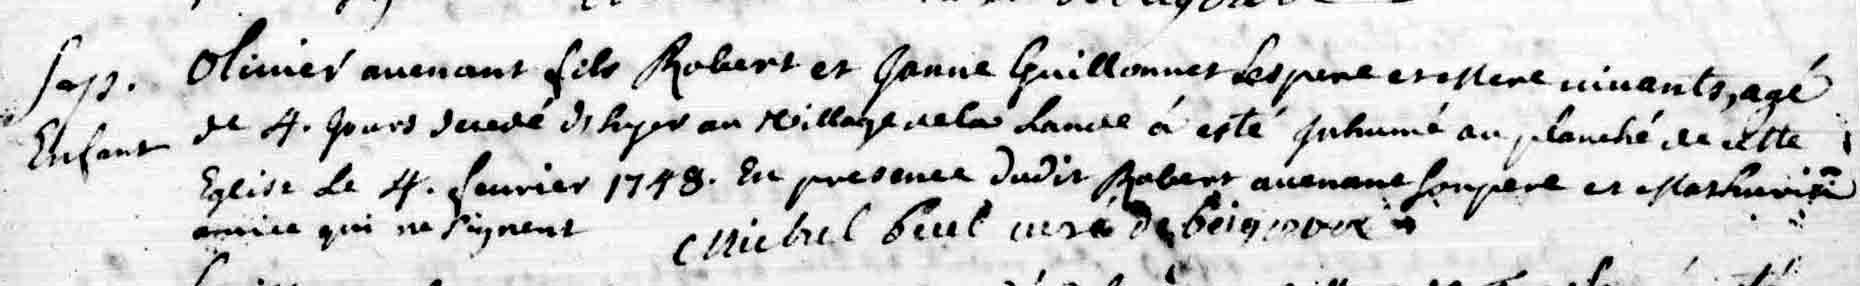 Sep. Olivier auenant fils Robert et Janne Guillonnet Les pere et Mere viuants, agé
Enfant de 4. Jours decedé d'hyer au Village de la Lande á esté Inhumé au planché de cette
Eglise Le 4. feurier 1748. En presence dudit Robert auenant son pere et Mathurin
qui ne signent Michel curé de